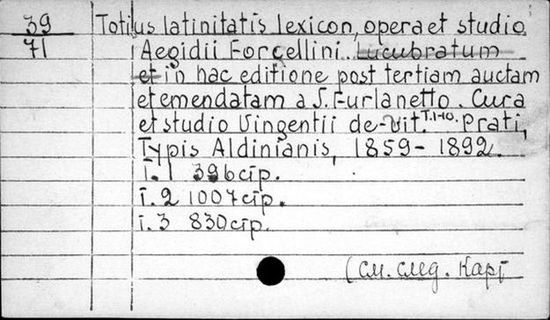 39 Totius latinitatis lexicon, opera et studio
71 Aegidii Forcellini.. Lucubratum
et in hac editione post tertiam auctam
et emendatam a J. Furlanetto. Cura
et studio Vingentii de-Vit. T.1-10. Prati,
Typis Aldinianis, 1859-1892.
Т.1 396 стр.
Т.2 1007 стр.
Т.3 830 стр.
(см. след. карт